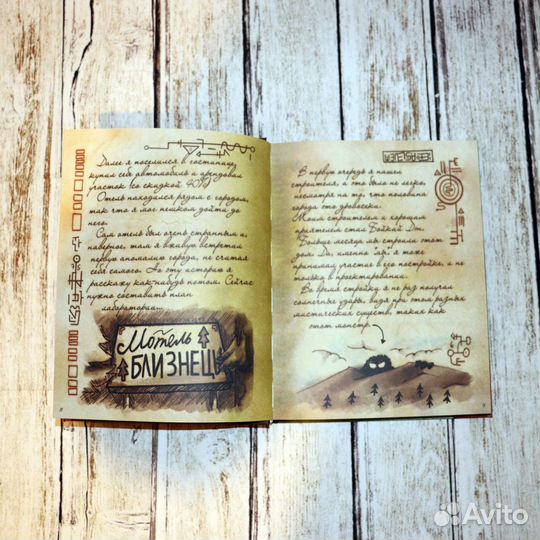 Далее я поселился в гостинице,
купил себе автомобиль и арендовал
участок (со скидкой 40%)
Отель находился рядом с городом,
так что я мог пешком дойти до
него.
Сам отель был очень странным и
наверное, там я вживую встретил
первую аномалию города, не считая
себя самого. Но эту историю я
расскажу как-нибудь потом. Сейчас
нужно составить план
лаборатории...
Мотель
БЛИЗНЕЦ
В первую очередь я нашел
строителя, а это было не легко,
несмотря на то, что половина
города это дровосеки.
Моим строителем и хорошим
приятелем стал Бойкий Дэн.
Больше месяца мы строили этот
дом. Да, именно "мы", я тоже
принимал участие в его постройке, а не
только в проектировании.
Во время стройки я не раз получал
солнечные удары, видя при этом разных
мистических существ, таких как
этот монстр.
Avito